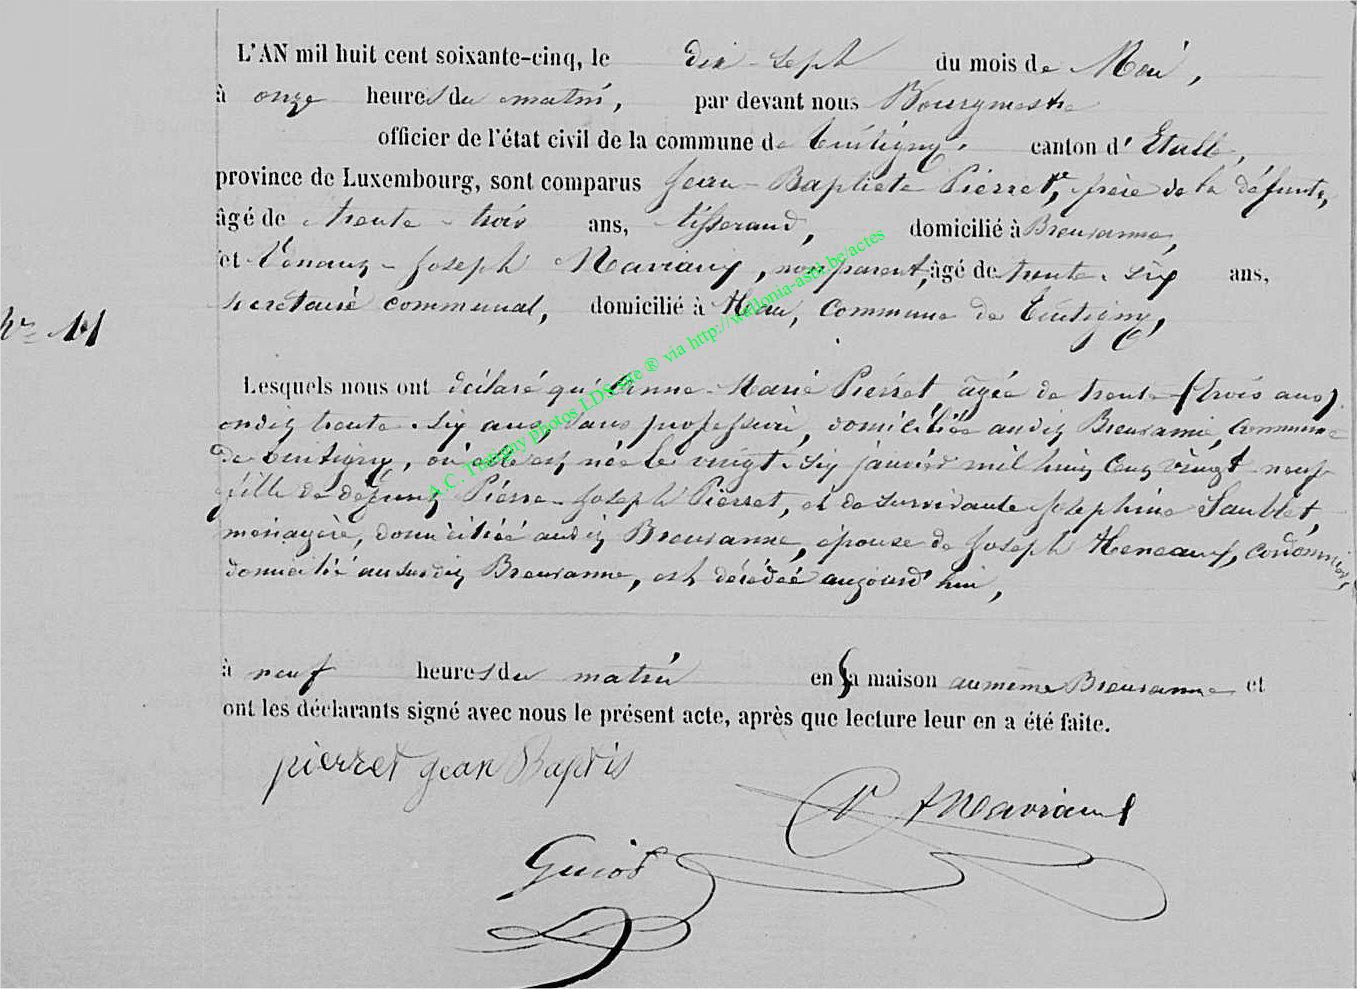 L'AN mil huit cent soixante-cinq, le dix-sept du mois de Mai,
à onze heures du matin, par devant nous Bourgmestre
officier de l'état civil de la commune de Tintigny, canton d'Etalle,
province de Luxembourg, sont comparus Jean-Baptiste Pierret, frère de la défunte,
âgé de trente-trois ans, tisserand, domicilié à Breuvanne,
et Joseph , non parent, âgé de trente-six ans,
secrétaire communal, domicilié à Han, commune de Tintigny,
N° 11
Lesquels nous ont déclaré qu'Anne-Marie Pierret, âgée de trente (trois ans)
ondix trente-six ans, sans profession, domiciliée audit Breuvanne, commune
de Tintigny, où elle est née le vingt-six janvier mil huit cent vingt-neuf
fille de défunt Pierre-Joseph Pierret, et de survivante Joséphine Saublet,
ménagère, domiciliée audit Breuvanne, épouse de Joseph Heneaux, cordonnier,
domicilié au susdit Breuvanne, est décédée aujourd'hui,
à neuf heures du matin en sa maison au même Breuvanne et
ont les déclarants signé avec nous le présent acte, après que lecture leur en a été faite.
pierret jean Baptis
Guiot
A.C. Tintigny photos LDS site ® via http://wallonia-asbl.be/actes